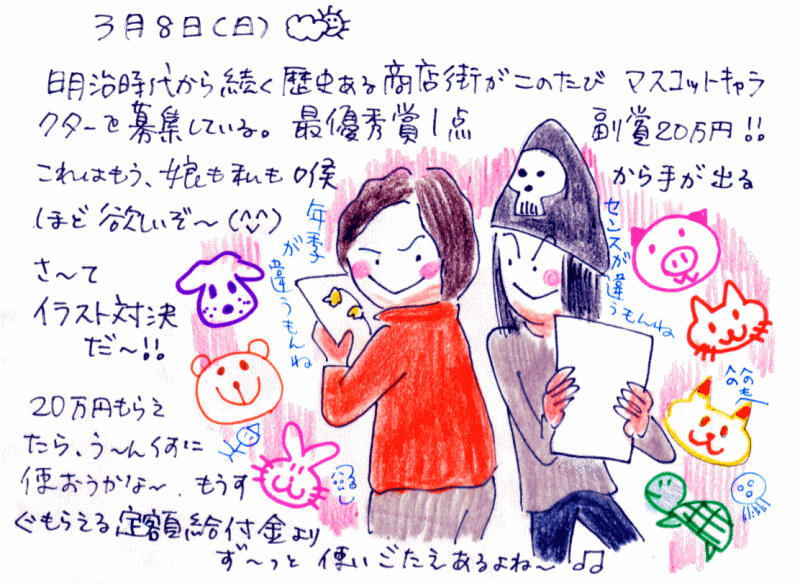 3月8日(日)
明治時代から続く歴史ある商店街がこのたび マスコットキャラ
クターを募集している。 最優秀賞1点 副賞20万円!!
これはもう、娘も私も喉から手が出る
ほど欲しいぞ〜(^^)
さ〜て
イラスト対決
だ〜!!
年季
が
違うもんね
センスが違うもんね
20万円もらえ
たら、う〜ん何に
使おうかな〜、もうす
ぐもらえる定額給付金より
ず〜っと 使いごたえあるよね〜 ♫